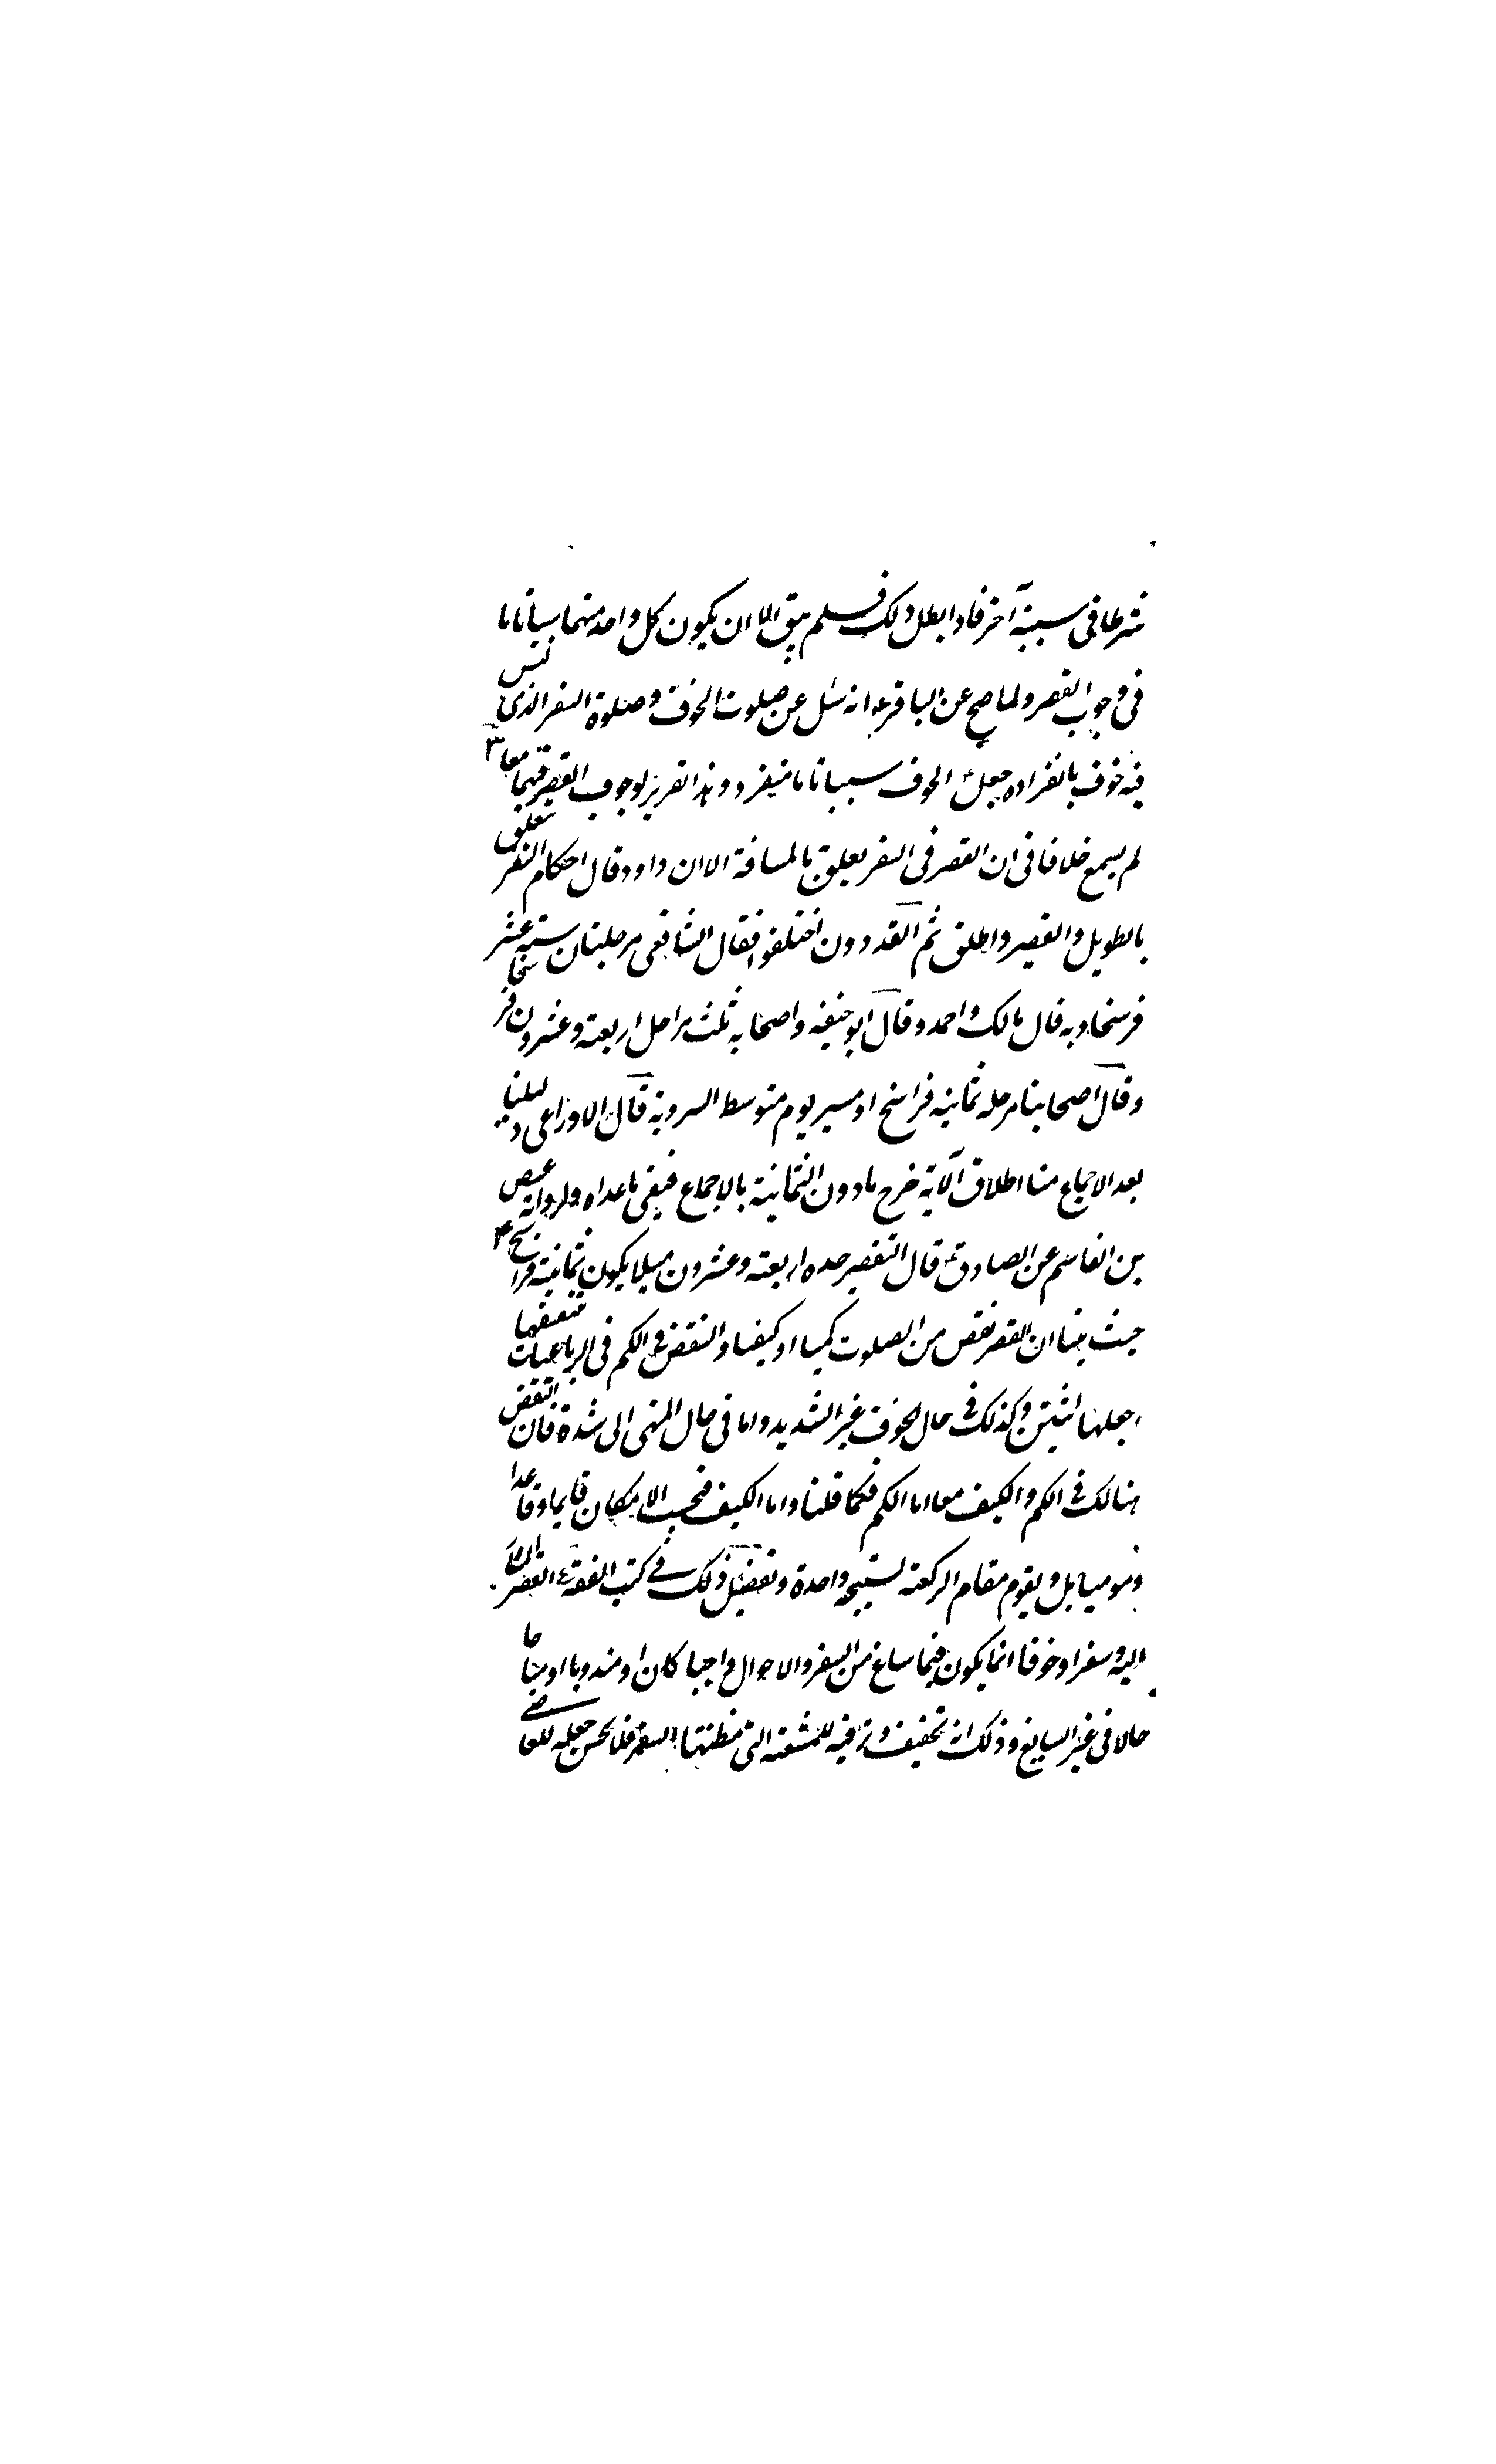 شرطا فی سببیة آخر فاذا بطل ذلک فلم یبق الا ان یکون کل واحد منهما سببا تاما
فی وجوب القصر ولما صح عن الباقر ع انه سئل عن صلوة الخوف وصلوة السفر الذی لیس
فیه خوف بانفراده جعل الخوف سببا تاما منفردا وهذا تقریر لوجوب القصر فیهما معا ٣
لم یسمع خلافا فی ان القصر فی السفر یعلق بالمسافة الا ان داود قال احکام السفر تتعلق
بالطویل والقصیر واطلق ثم المقدرون اختلفوا فقال الشافعی مرحلتان ستة عشر
فرسخا وبه قال مالک واحمد وقال ابو حنیفة واصحابه ثلث مراحل اربعة وعشرون فرسخا
وقال اصحابنا مرحلة ثمانیة فراسخ او مسیر یوم متوسط السیر وبه قال الاوزاعی دلیلنا
بعد الاجماع منا اطلاق الآیة خرج ما دون الثمانیة بالاجماع فیبقی ما عداه ولروایة عیص
بن القاسم عن الصادق ع قال التقصیر حده اربعة وعشرون میلا یکون ثمانیة فراسخ ۴
حیث بینا ان القصر نقص من الصلوة کمیا او کیفیا والنقص فی الکم فی الرباعیات تنصیفها
جعلها اثنتین وکذلک فی حال الخوف غیر الشدید واما فی حال المنتهی الی شدة فان النقص
هنالک فی الکم والکیف معا اما الکم فکما قلنا واما الکیف فبحسب الامکان قایما او قاعدا
ومومیا بل ویقوم مقام الرکعة تسبیحة واحدة وتفصیل ذلک فی کتب الفقه ٤ القصر المشار
الیه سفرا وخوفا انما یکون فیما ساغ من السفر والاحوال واجبا کان او مندوبا او مباحا
حالا فی غیر السایغ وذلک انه تخفیف وترفیه للمشقة التی مظنتها السفر فلا یحسن جعله للعاصی